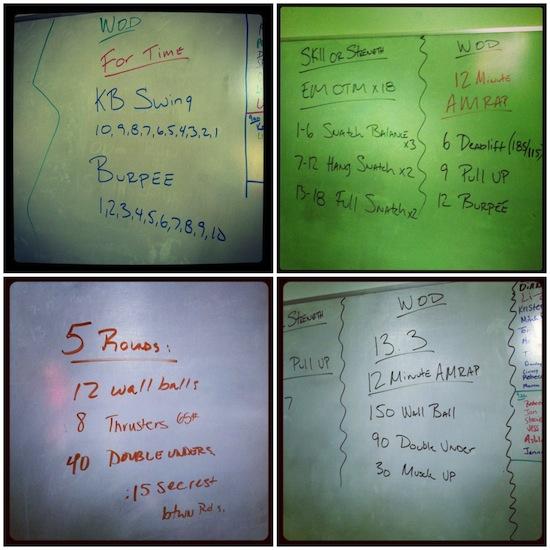 WOD
For Time
KB Swing
10,9,8,7,6,5,4,3,2,1
Burpee
1,2,3,4,5,6,7,8,9,10
Skill or Strength
EMOTM x18
1-6 Snatch Balance x3
7-12 Hang Snatch x2
13-18 Full Snatch x2
WOD
12 Minute
AMRAP
6 Deadlift (185/115)
9 Pull UP
12 Burpee
5 Rounds:
12 wall balls
8 Thrusters 65#
40 DOUBLE UNDERS
:15 sec rest
btwn Rds.
Strength
Pull UP
7
WOD
13.3
12 Minute AMRAP
150 Wall Ball
90 Double Under
30 Muscle UP
Kristen
Rebecca
Jon
Jess
Jenn